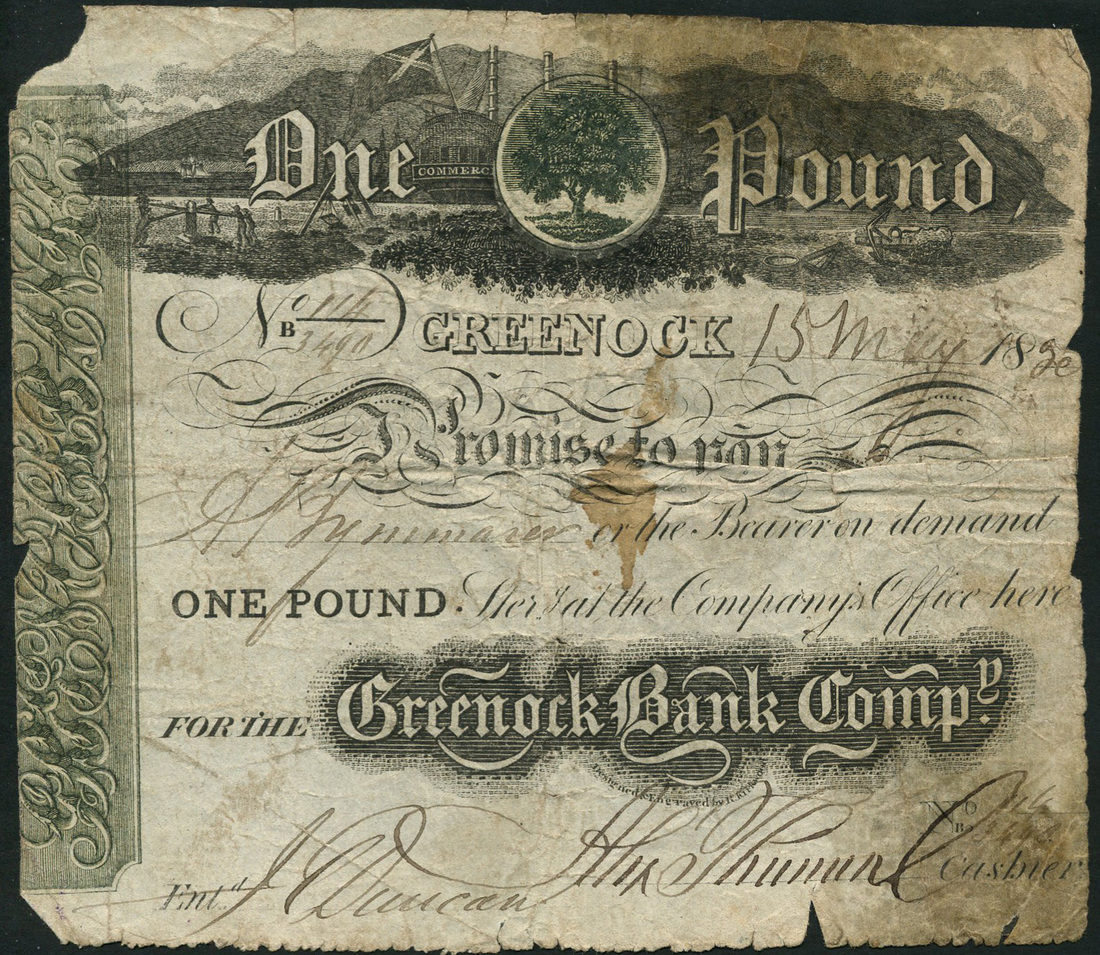 One Pound
COMMERC
No B 114/3490 GREENOCK 15 May 1820
I Promise to pay
or the Bearer on demand
ONE POUND Sterg at the Company's Office here
FOR THE Greenock Bank Compy.
Designed & Engraved by
No
Entd. J Duncan Alex Thomson Cashier